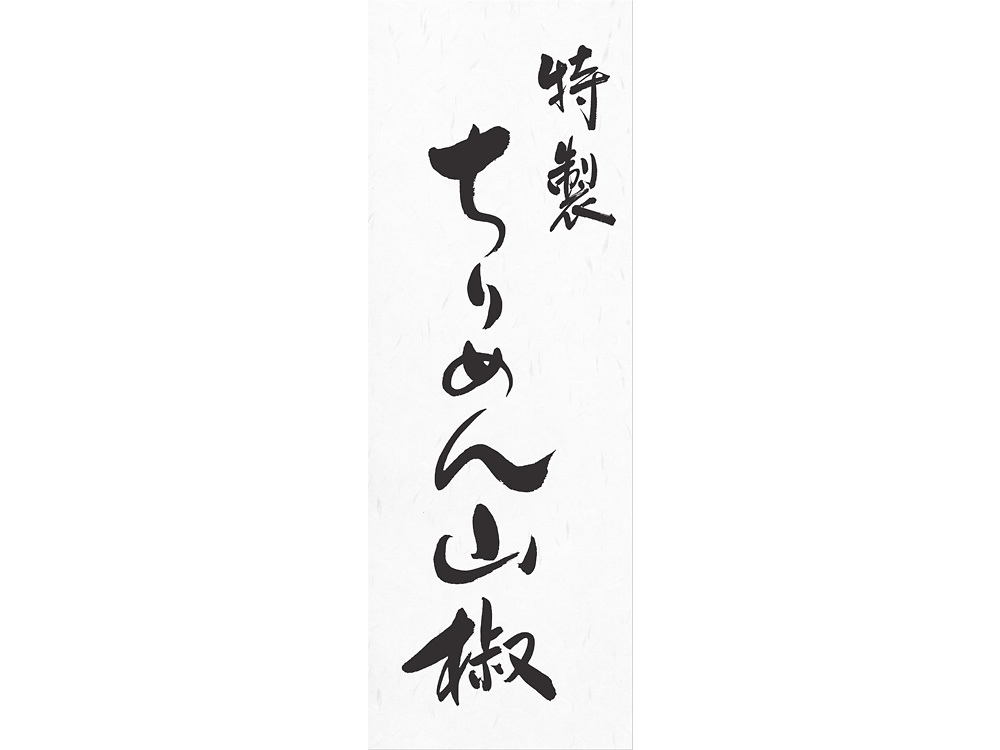 特製
ちりめん山椒